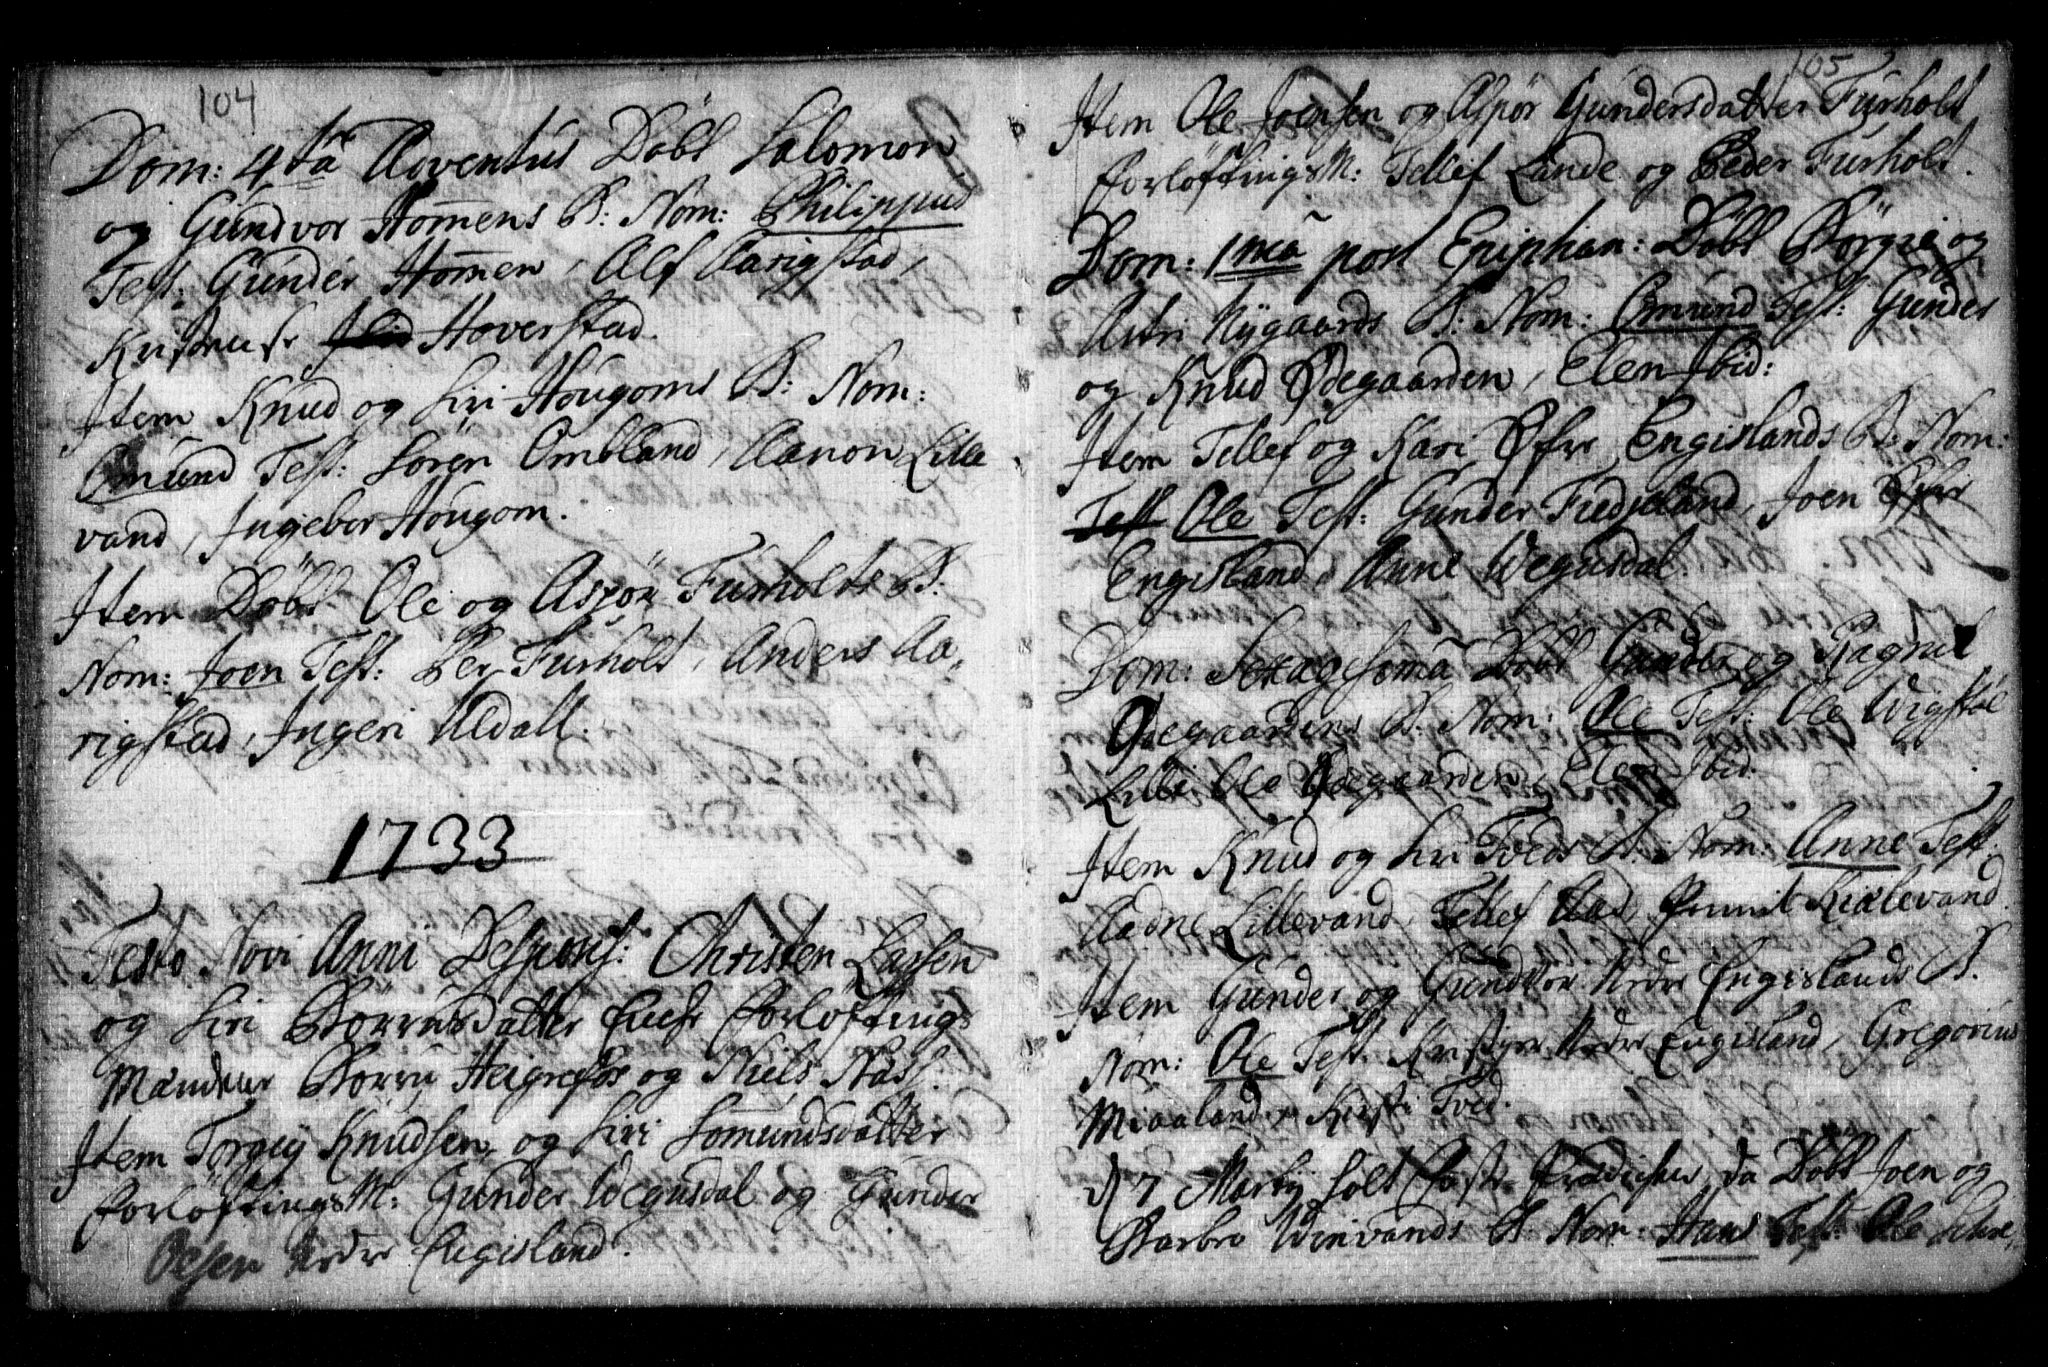 104
Dom: 4ta Adventus Döbt Salomon
og Gundvor Homens B: Nom: Philippus
Test: Gunder Homen, Alf Aarigstad,
Hoverstad.
Item Knud og Siri Hougoms B: Nom:
Omund Test: Sören Ombland, Aanon Lille
vand, Ingebor Hougom.
Item Döbt Ole og Aspör Furholts B:
Nom: Joen Test: Per Furholt, Anders Aa,
rigstad, Ingeri Uldall.
1733
Festo Novi Anni Desponsf: Christen Lassen
og Siri Börrusdatter Forlöftings
Mændene Börru Heigrefos og Niels
Item Torgiy Knudsen og Siri Somundsdatter
ForlöftingsM: Gunder Wegusdal og Gunder
Olsen Nedre Engisland.
105
Item Ole Joensen og Aspör Gundersdatter Furholt
ForlöftingsM: Tellef Lande og Peder Furholt.
Dom: 1ma post Epiphan: Döbt Börgie og
Astri Nygaards B: Nom: Omund Test: Gunder
og Knud Ødegaarden, Elen Ibid:
Item Tellef og Kari Øfre Engislands B: Nom:
Test Ole Test: Gunder Fredjeland, Joen Øfre
Engisland, Anne Wegusdal.
Dom: Sexagesima Döbt Gunder og Ragnil
Ødegaardens B: Nom: Ole Test: Ole Wigstöl
Lille Ole Ødegaarden, Elen Ibid.
Item Knud og Siri Tveds B: Nom: Anne Test:
Aadne Lillevand, Tellef Aas, Gunnil Kiælevand.
Item Gunder og Gundvor Nedre Engislands B.
Nom: Ole Test: Nedre Engisland, Gregorius
Miaaland, Kirsti Tved.
d 7 Martij holt Faste Prædichen, da Döbt Joen og
Barbro Winvands B: Nom: Hans Test: Ole